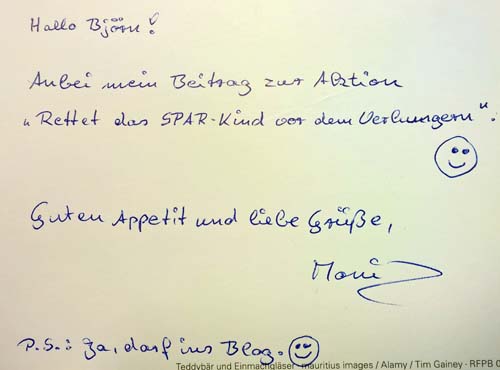 Hallo Björn!
Anbei mein Beitrag zur Aktion
"Rettet das SPAR-Kind vor dem Verhungern".
Guten Appetit und liebe Grüße,
Moni
P.S.: Ja, darf ins Blog.
Teddybär und Einmachgläser mauritius images / Alamy / Tim Gainey - RFPB 0